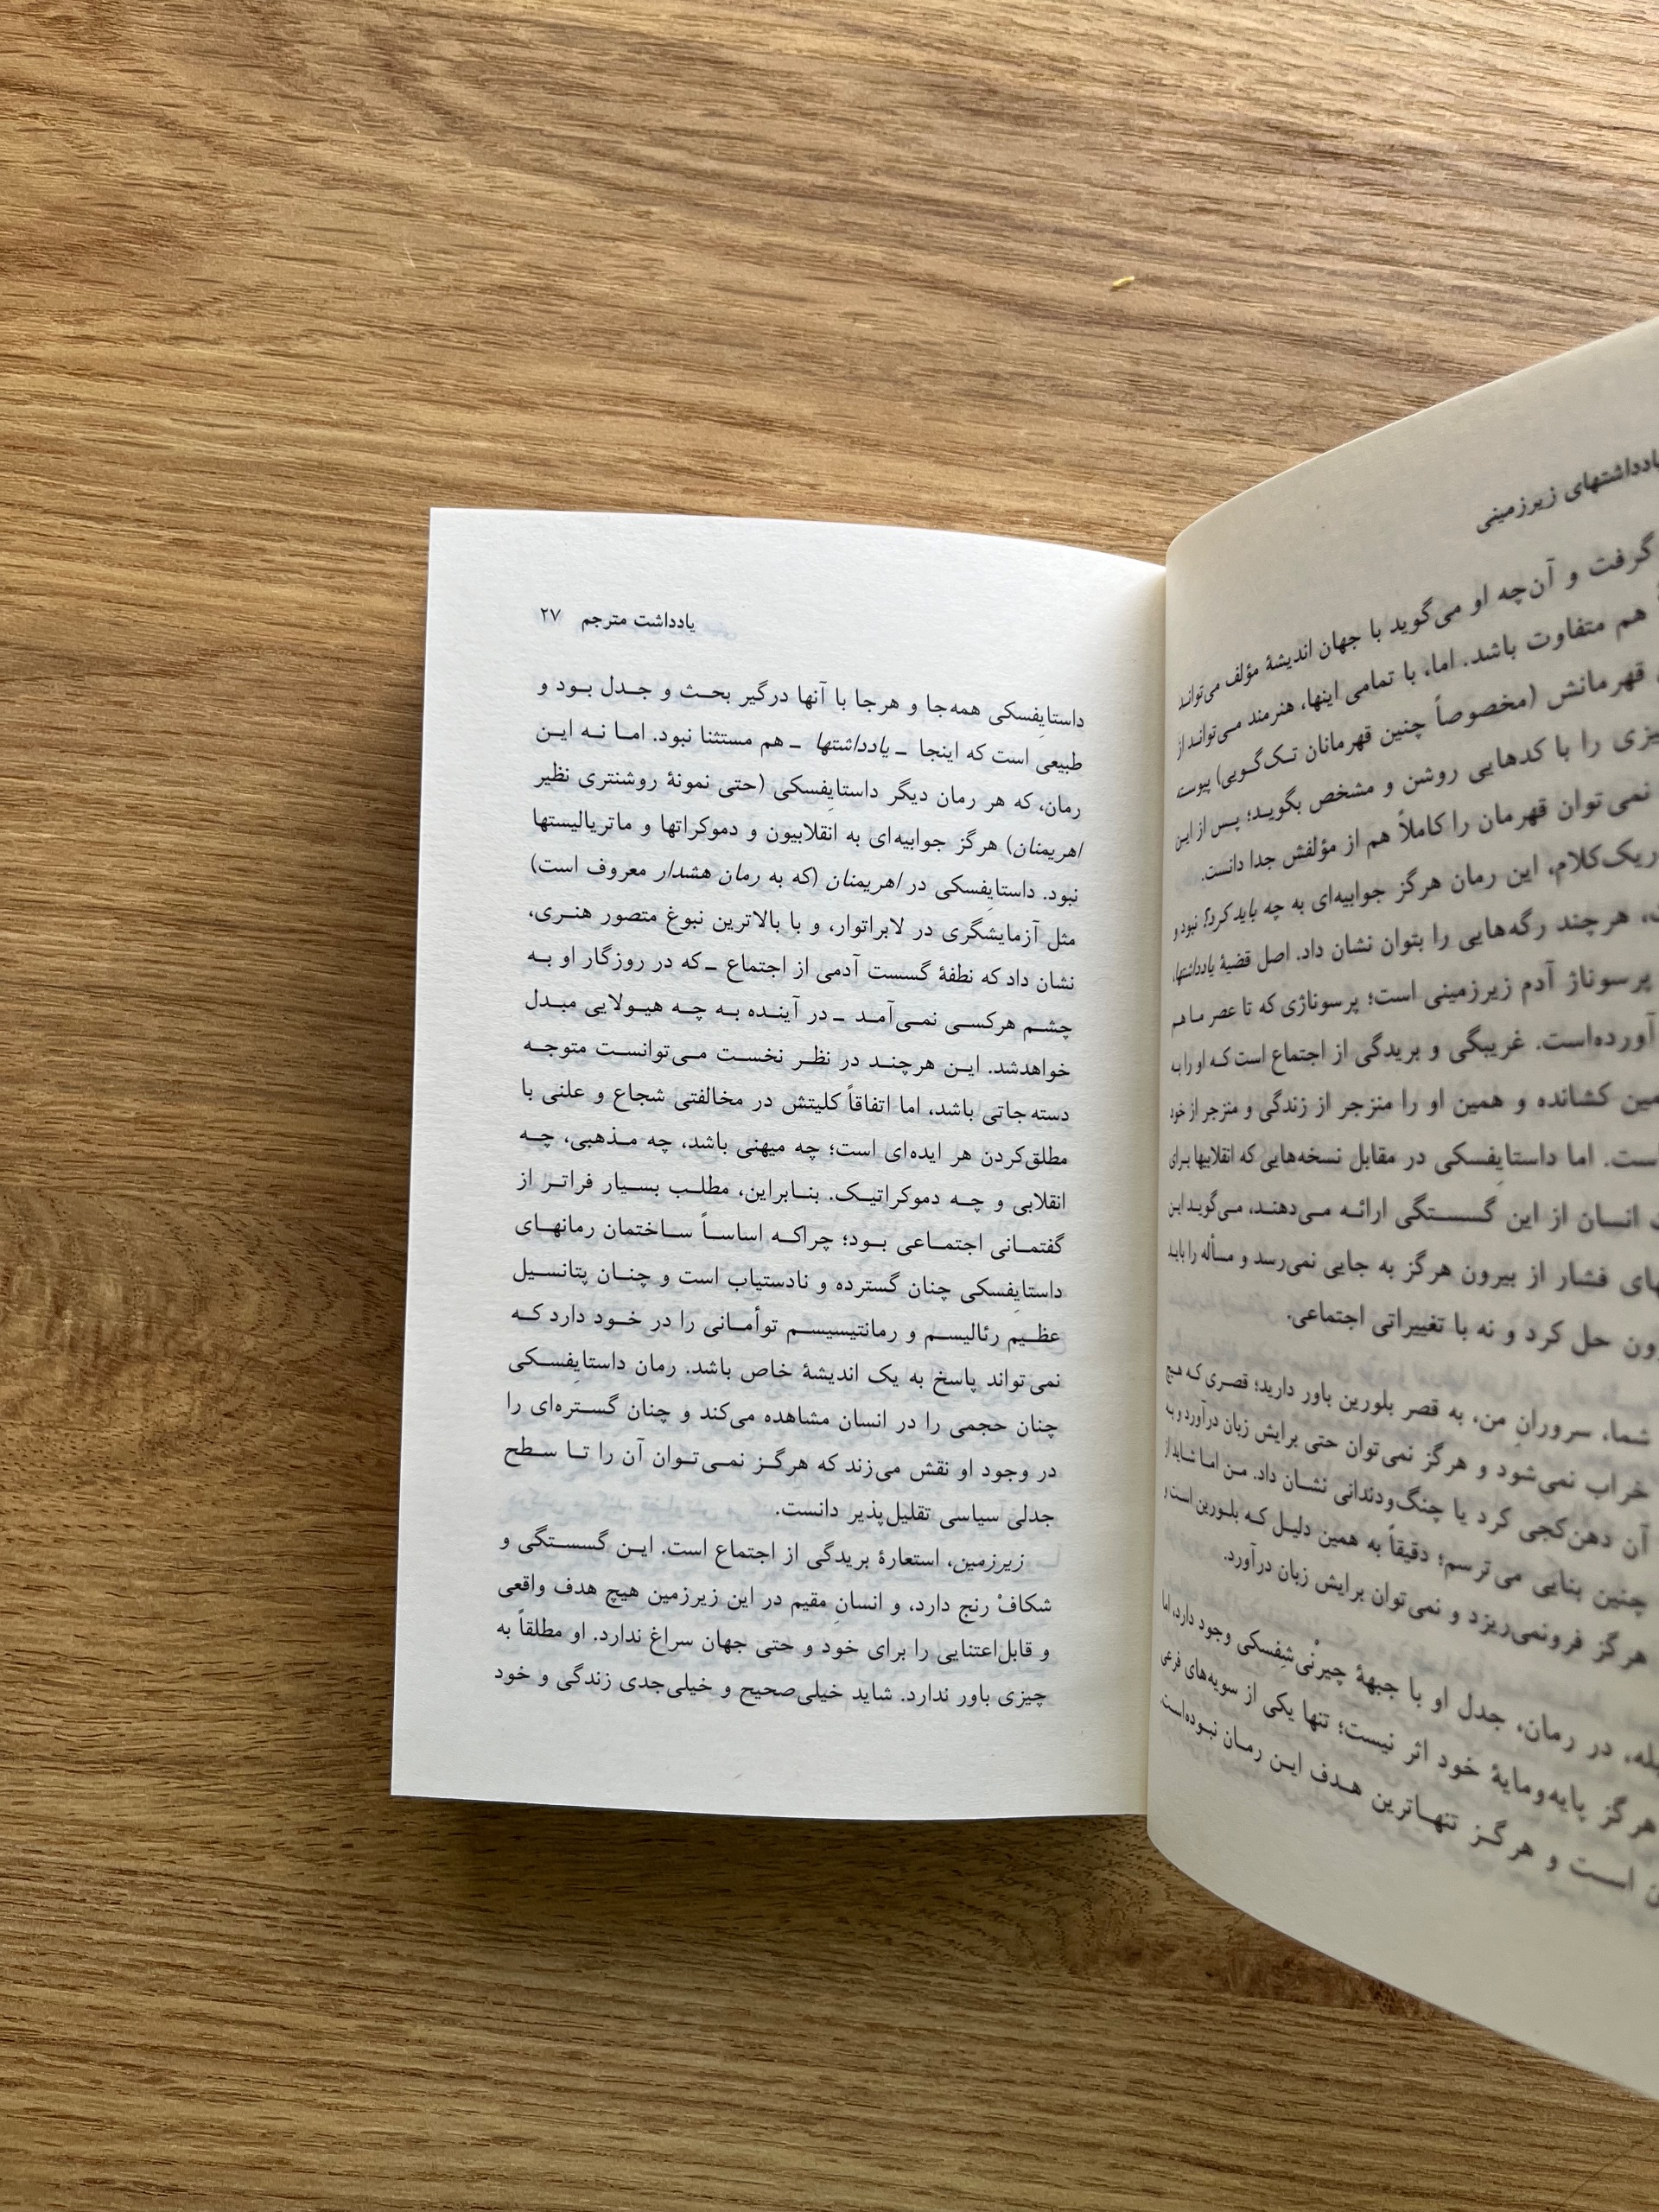 یادداشتهای زیرزمینی
گرفت و آن‌چه او می‌گوید با جهان اندیشهٔ مؤلف می‌تواند
هم متفاوت باشد. اما، با تمامی اینها، هنرمند می‌تواند از
قهرمانش (مخصوصاً چنین قهرمانان تک‌گویی) پیوسته
را با کدهایی روشن و مشخص بگوید؛ پس از این
نمی‌توان قهرمان را کاملاً هم از مؤلفش جدا دانست.
در یک‌کلام، این رمان هرگز جوابیه‌ای به چه باید کرد؟ نبود و
هرچند رگه‌هایی را بتوان نشان داد. اصل قضیهٔ یادداشتها،
پرسوناژ آدم زیرزمینی است؛ پرسوناژی که تا عصر ما هم
آورده‌است. غریبگی و بریدگی از اجتماع است که او را به
کشانده و همین او را منزجر از زندگی و منزجر از خود
اما داستایِفسکی در مقابل نسخه‌هایی که انقلابیها برای
انسان از این گسستگی ارائه می‌دهند، می‌گوید این
فشار از بیرون هرگز به جایی نمی‌رسد و مسأله را باید
حل کرد و نه با تغییراتی اجتماعی.
شما، سرورانِ من، به قصر بلورین باور دارید؛ قصری که هیچ
خراب نمی‌شود و هرگز نمی‌توان حتی برایش زبان درآورد و به
آن دهن‌کجی کرد یا چنگ‌ودندانی نشان داد. من اما شاید از
چنین بنایی می‌ترسم؛ دقیقاً به همین دلیل که بلورین است و
هرگز فرونمی‌ریزد و نمی‌توان برایش زبان درآورد.
در رمان، جدل او با جبههٔ چیرنْی‌شِفسکی وجود دارد، اما
هرگز پایه‌ومایهٔ خود اثر نیست؛ تنها یکی از سویه‌های فرعی
است و هرگز تنهاترین هدف این رمان نبوده‌است.
یادداشت مترجم ۲۷
داستایِفسکی همه‌جا و هرجا با آنها درگیر بحث و جدل بود و
طبیعی است که اینجا ـ یادداشتها ـ هم مستثنا نبود. اما نه این
رمان، که هر رمان دیگر داستایِفسکی (حتی نمونهٔ روشنتری نظیر
اهریمنان) هرگز جوابیه‌ای به انقلابیون و دموکراتها و ماتریالیستها
نبود. داستایِفسکی در اهریمنان (که به رمان هشدار معروف است)
مثل آزمایشگری در لابراتوار، و با بالاترین نبوغ متصور هنری،
نشان داد که نطفهٔ گسست آدمی از اجتماع ـ که در روزگار او به
چشم هرکسی نمی‌آمد ـ در آینده به چه هیولایی مبدل
خواهدشد. این هرچند در نظر نخست می‌توانست متوجه
دسته‌جاتی باشد، اما اتفاقاً کلیتش در مخالفتی شجاع و علنی با
مطلق‌کردن هر ایده‌ای است؛ چه میهنی باشد، چه مذهبی، چه
انقلابی و چه دموکراتیک. بنابراین، مطلب بسیار فراتر از
گفتمانی اجتماعی بود؛ چراکه اساساً ساختمان رمانهای
داستایِفسکی چنان گسترده و نادستیاب است و چنان پتانسیل
عظیم رئالیسم و رمانتیسیسم توأمانی را در خود دارد که
نمی‌تواند پاسخ به یک اندیشهٔ خاص باشد. رمان داستایِفسکی
چنان حجمی را در انسان مشاهده می‌کند و چنان گستره‌ای را
در وجود او نقش می‌زند که هرگز نمی‌توان آن را تا سطح
جدلی سیاسی تقلیل‌پذیر دانست.
زیرزمین، استعارهٔ بریدگی از اجتماع است. این گسستگی و
شکافْ رنج دارد، و انسانِ مقیم در این زیرزمین هیچ هدف واقعی
و قابل‌اعتنایی را برای خود و حتی جهان سراغ ندارد. او مطلقاً به
چیزی باور ندارد. شاید خیلی‌صحیح و خیلی‌جدی زندگی و خود